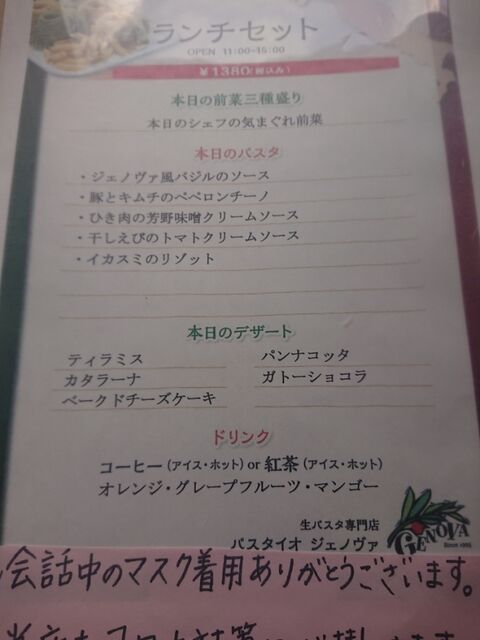 ランチセット
OPEN 11:00-15:00
¥1380(税込み)
本日の前菜三種盛り
本日のシェフの気まぐれ前菜
本日のパスタ
・ジェノヴァ風バジルのソース
・豚とキムチのペペロンチーノ
・ひき肉の芳野味噌クリームソース
・干しえびのトマトクリームソース
・イカスミのリゾット
本日のデザート
ティラミス パンナコッタ
カタラーナ ガトーショコラ
ベークドチーズケーキ
ドリンク
コーヒー(アイス・ホット) or 紅茶(アイス・ホット)
オレンジ・グレープフルーツ・マンゴー
生パスタ専門店
パスタイオ ジェノヴァ
GENOVA
Since 1995
会話中のマスク着用ありがとうございます。